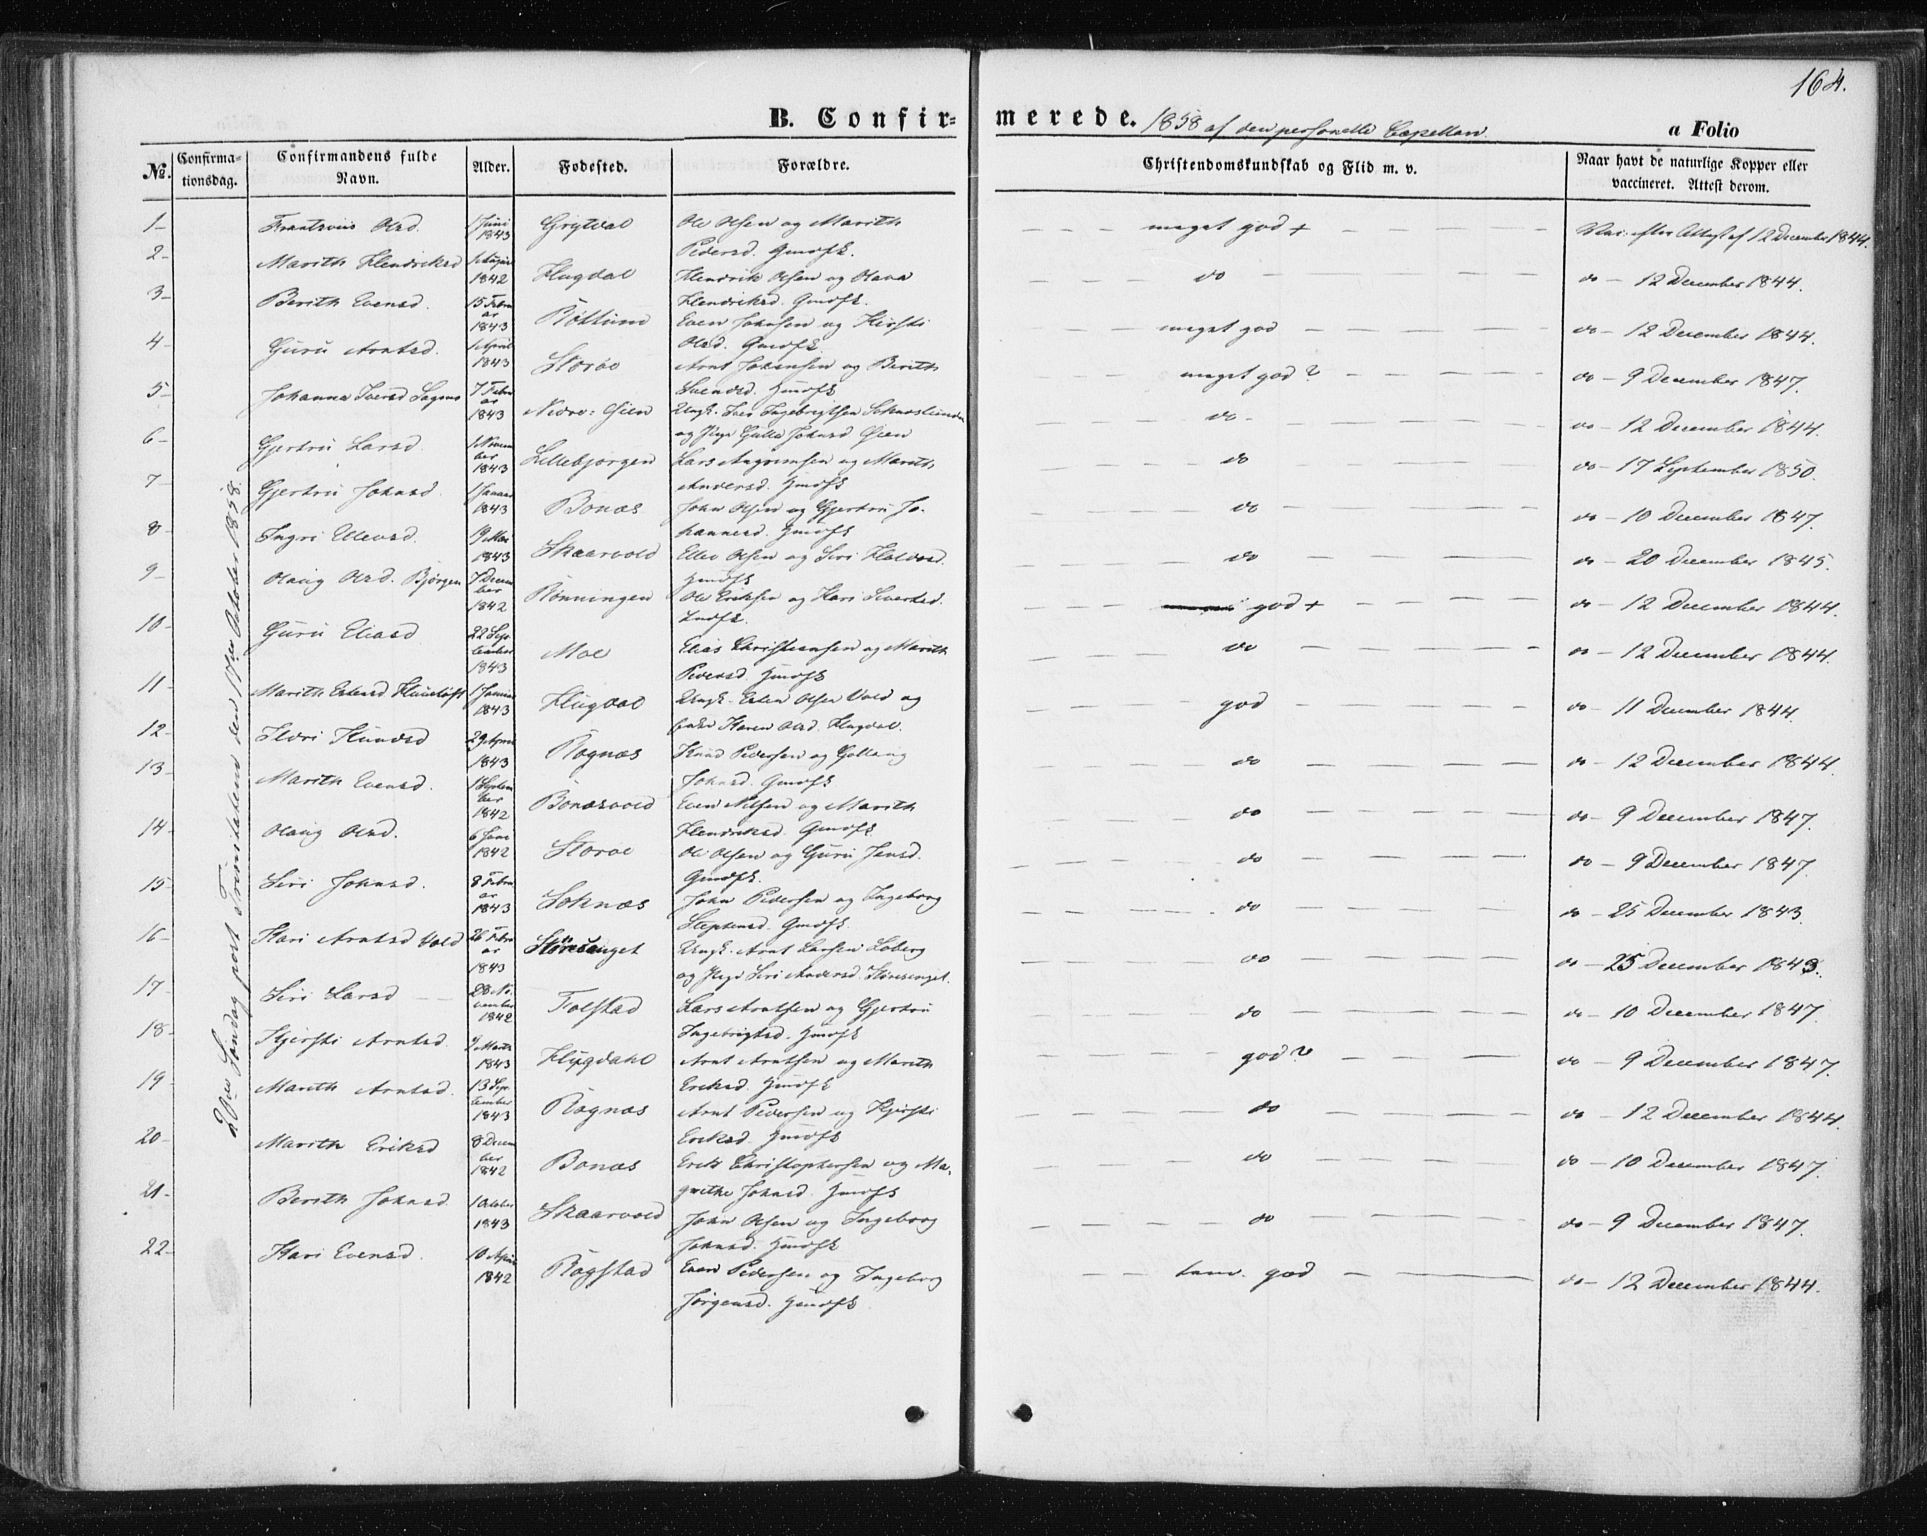 164.
B. Confir-merede. 1858 af den personelle Capellan a Folio
No. Confirma-tionsdag. Confirmandens fulde Navn. Alder. Fødested. Forældre. Christendomskundskab og Flid m. v. Naar havt de naturlige Kopper eller vaccineret. Attest derom.
20de Søndag post Trinitatem den 17de October 1858.
1 - Olsd. 1 Juni 1843 Grytdal Ole Olsen og Marith Pedersd. Gmdfk. meget god + Vac. efter Attest af 12 December 1844.
2 - Marith Hendriksd 1842 Hugdal Hendrik Olsen og Olava Hendriksd. Gmdfk. do do - 12 December 1844.
3 - Berith Evensd. 15 Februar 1843 Bøttum Even Johnsen og Kirsti Olsd. Gmdfk. meget god do - 12 December 1844.
4 - Guru Arntsd. 1 April 1843 Storøe Arnt Johansen og Berith Svendsd. Hmdfk. meget god? do - 9 December 1847.
5 - Johanna Iversd 7 Februar 1843 Nedre-Øien Ungk. Iver Ingebrigtsen og Pige Johnsd Øien do - do - 12 December 1844.
6 - Gjertru Larsd. 1 November 1843 Lillebjørgen Lars Angrimsen og Marith Andersd. Hmdfk do do - 17 September 1850.
7 - Gjertru Johnsd. 1 Januar 1843 Bonæs John Olsen og Gjertru Johannesd. Hmdfk do do - 10 December 1847.
8 - Ingri Ellevsd. 1843 Skaarvold Ellev Olsen og Siri Halvorsd. Hmdfk do do - 20 December 1845.
9 - Olaug Olsd. Bjørgen 7 December 1842 Rønningen Ole Eriksen og Kari Sivertsd. Indfk. god + do - 12 December 1844.
10 - Guru Eliasd 22 September 1843 Moe Elias Christiansen og Marith Pedersd Hmdfk do do - 12 December 1844.
11 - Marith Estensd 1 Januar 1843 Hugdal Ungk. Esten Olsen Vold og Enke Karen Olsd. Hugdal. god do - 11 December 1844.
12 - Knudsd 29 April 1843 Rognæs Knud Pedersen og Gollaug Johnsd. Gmdfk do do - 12 December 1844.
13 - Marith Evensd. 1 September 1842 Bonæsvold Even Nilsen og Marith Hendriksd. Gmdfk do do - 9 December 1847.
14 - Olaug Olsd. 6 Juni 1842 Storøe Ole Olsen og Guru Jensd. Gmdfk. do do - 9 December 1847.
15 - Siri Johnsd. 8 Februar 1843 Soknæs John Pedersen og Ingeborg Stephensd. Gmdfk. do do - 25 December 1843.
16 - Kari Arntsd Vold 26 Februar 1843 Støresenget Ungk. Arnt Larsen Loberg og Pige Siri Andersd. Størenget. do do - 25 December 1843.
17 - Siri Larsd 28 November 1842 Folstad Lars Arntsen og Gjertru Ingebrigtsd. Hmdfk do do - 10 December 1847.
18 - Kjersti Arntsd. 9 Marts 1843 Hugdahl Arnt Arntsen og Marith Eriksd. Hmdfk god? do - 9 December 1847.
19 - Marith Arntsd. 13 September 1843 Rognæs Arnt Pedersen og Kjersti Eriksd. Hmdfk do do - 12 December 1844.
20 - Marith Eriksd 8 December 1842 Bonæs Erik Christophersen og Magrethe Johnsd. Hmdfk do do - 10 December 1847.
21 - Berith Johnsd. 1 October 1843 Skaarvold John Olsen og Ingeborg Johnsd. Hmdfk do do - 9 December 1847.
22 - Kari Evensd. 10 April 1842 Rogstad Even Pedersen og Ingeborg Jørgensd. Hmdfk. tem. god do - 12 December 1844.